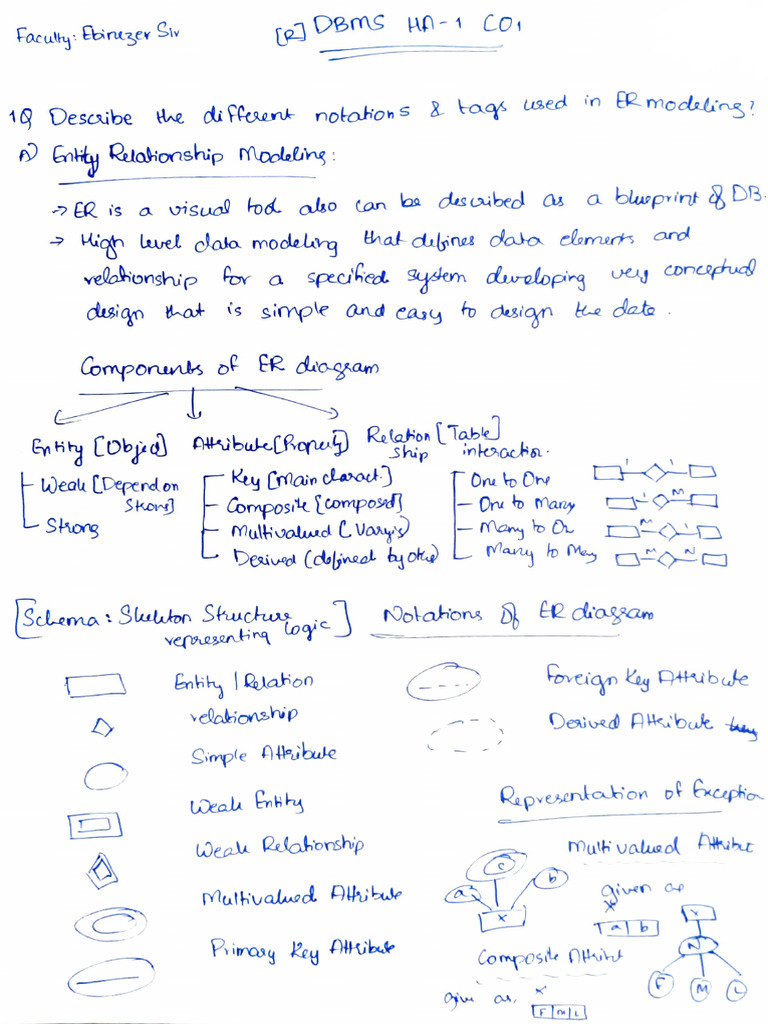 Faculty: Ebinezer Sir
[R] DBMS HA-1 CO1
1Q Describe the different notations & tags used in ER modeling?
A) Entity Relationship Modeling:
→ ER is a visual tool also can be described as a blueprint of DB.
→ High level data modeling that defines data elements and
relationship for a specified system developing very conceptual
design that is simple and easy to design the data.
Components of ER diagram
Entity [Object] Attribute [Property] Relation [Table]
ship interaction.
Weak [Depend on
Strong]
Strong
Key [Main charact.]
Composite [composed]
Multivalued (Varying)
Derived (defined by other)
One to One
One to Many
Many to On
Many to Many
1 1
1 M
M 1
M N
[Schema: Skeleton Structure
representing logic]
Notations of ER diagram
Entity | Relation
relationship
Simple Attribute
Weak Entity
Weak Relationship
Multivalued Attribute
Primary Key Attribute
Foreign Key Attribute
Derived Attribute
Representation of Exception
Multivalued Attribt
a c b
x
given as
x
a b
Composite Attribt
give as,
x
F M L
x
N
F M L